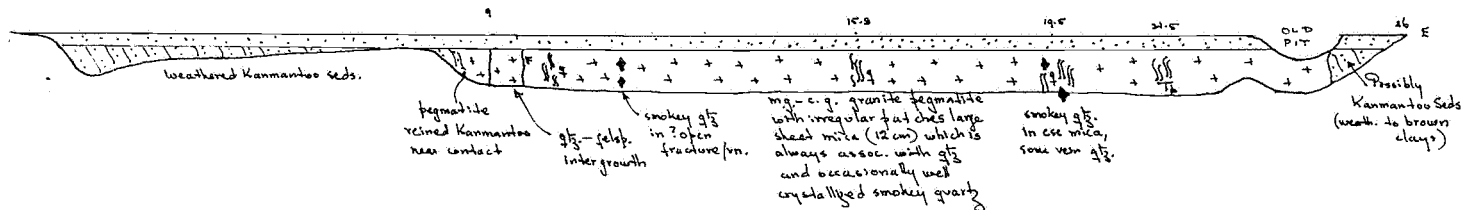 9
15.8
19.5
21.5
26
E
OLD
PIT
weathered Kanmantoo seds.
F
q
q
q
pegmatite
veined Kanmantoo
near contact
qtz-felsp.
intergrowth
smokey qtz
in ?open
fracture/vn.
m.g.-c.g. granite pegmatite
with irregular patches large
sheet mica (12 cm) which is
always assoc. with qtz
and occasionally well
crystallized smokey quartz
smokey qtz.
in cse mica,
some vein qtz.
Possibly
Kanmantoo Seds
(weath. to brown
clays)